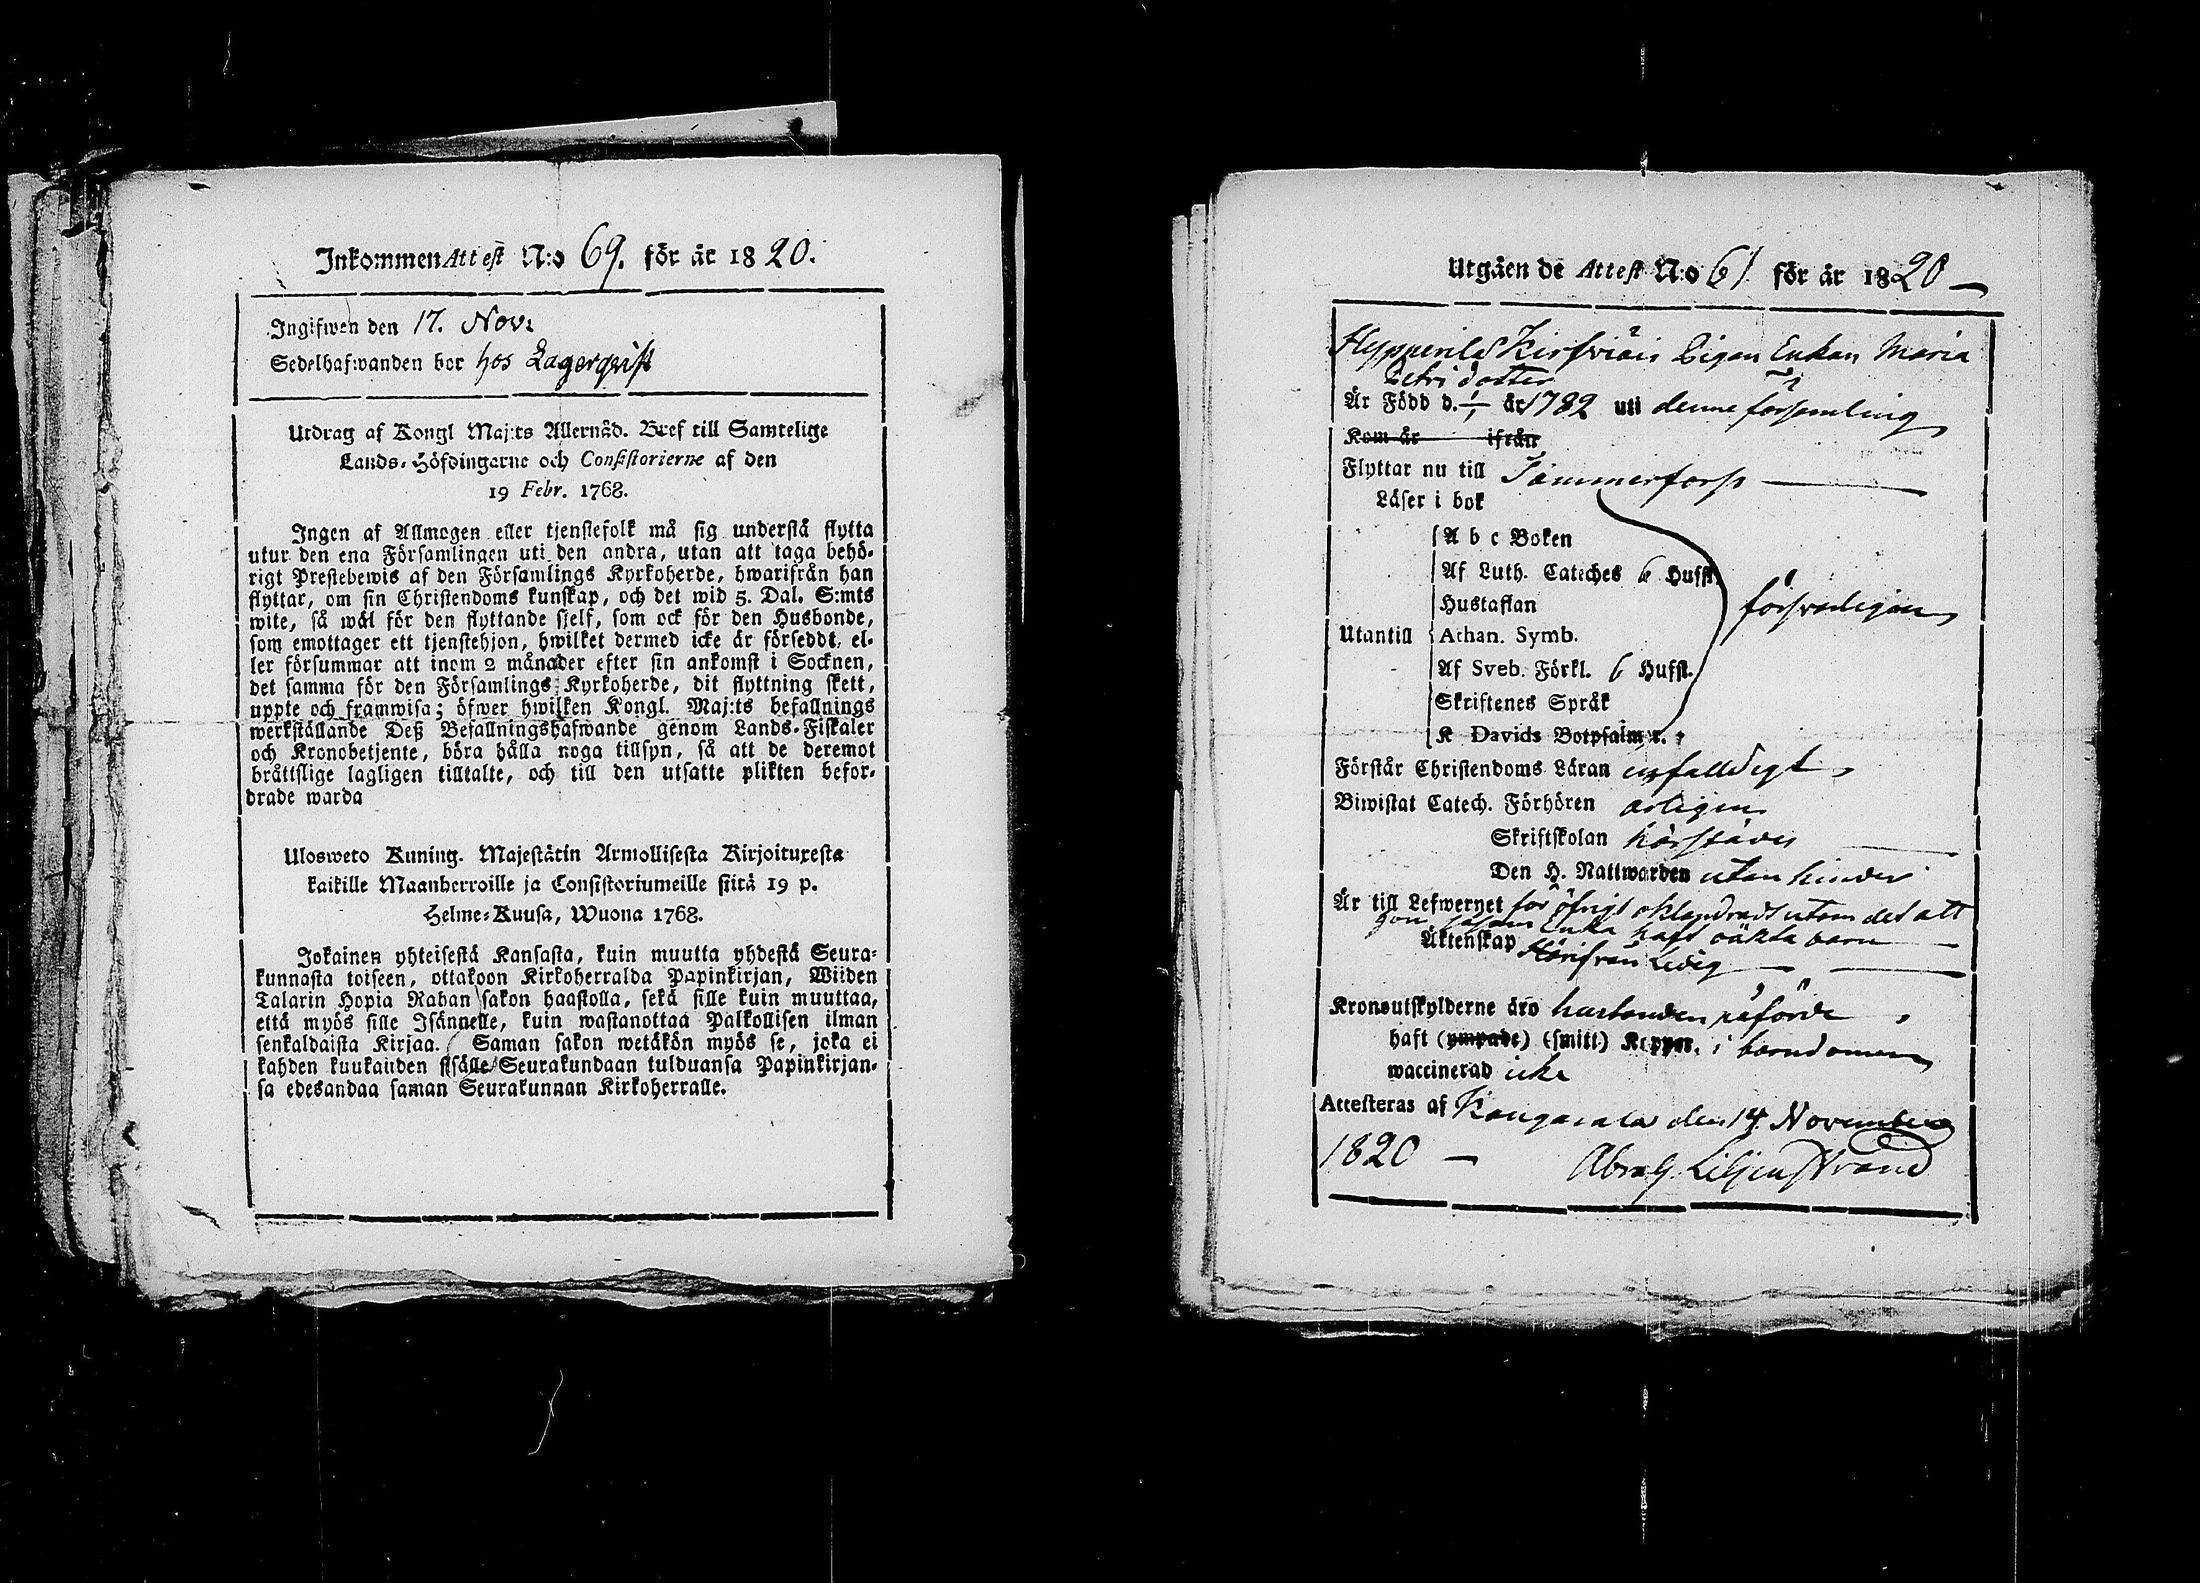 Inkommen Attest N:o 69. för år 1820.
Ingifwen den 17. Nov:
Sedelhafwanden bor hos Lagerqvist
Utdrag af Kongl Maj:ts Allernåd. Bref till Samtelige
Lands-Höfdingarne och Consistorierne af den
19 Febr. 1768.
Ingen af Allmogen eller tjenstefolk må sig understå flytta
utur den ena Församlingen uti den andra, utan att taga behö-
rigt Prestebewis af den Församlings Kyrkoherde, hwarifrån han
flyttar, om sin Christendoms kunskap, och det wid 5. Dal. S:mts
wite, så wäl för den flyttande sjelf, som ock för den Husbonde,
som emottager ett tjenstehjon, hwilket dermed icke är försedt, el-
ler försummar att inom 2 månader efter sin ankomst i Socknen,
det samma för den Församlings Kyrkoherde, dit flyttning skett,
uppte och framwisa; öfwer hwilken Kongl. Maj:ts befallnings
werkställande Deß Befallningshafwande genom Lands-Fiskaler
och Kronobetjente, böra hålla noga tillsyn, så att de deremot
bråttslige lagligen tilltalte, och till den utsatte plikten befor-
drade warda
Ulosweto Kuning. Majestätin Armollisesta Kirjoituxesta
kaikille Maanherroille ja Consistoriumeille siitä 19 p.
Helme-Kuusa, Wuona 1768.
Jokainen yhteisestä Kansasta, kuin muutta yhdestä Seura-
kunnasta toiseen, ottakoon Kirkoherralda Papinkirjan, Wiiden
Talarin Hopia Rahan sakon haastolla, sekä sille kuin muuttaa,
että myös sille Isännelle, kuin wastanottaa Palkollisen ilman
senkaldaista Kirjaa. Saman sakon wetäkön myös se, joka ei
kahden kuukauden sisälle Seurakundaan tulduansa Papinkirjan-
sa edesandaa saman Seurakunnan Kirkoherralle.
Utgåen de Attest N:o 61 för år 1820
Enkan Maria
Petri dotter
Är Född d. 1/1 år 1782 uti denne församling
Kom år ifrån
Flyttar nu till Tammerfors
Läser i bok
A b c Boken
Af Luth. Cateches 6 Hufst.
Hustaflan
Utantill Athan. Symb. försvarligen
Af Sveb. Förkl. 6 Hufst.
Skriftenes Språk
K Davids Botpsalmer.
Förstår Christendoms Läran enfalldigt
Biwistat Catech. Förhören årligen
Skriftskolan härstädes
Den H. Nattwarden utan hinder
Är till Lefwernet för öfrigt oklandrad utom det att
hon såsom Enka haft oäkta barn
Äktenskap Härifrån Ledig
Kronoutskylderne äro husbonden påförde
haft (ympade) (smitt) Koppor. i barndomen
waccinerad icke
Attesteras af Kangasala den 14 November
1820 Abrah. Liljenstrand